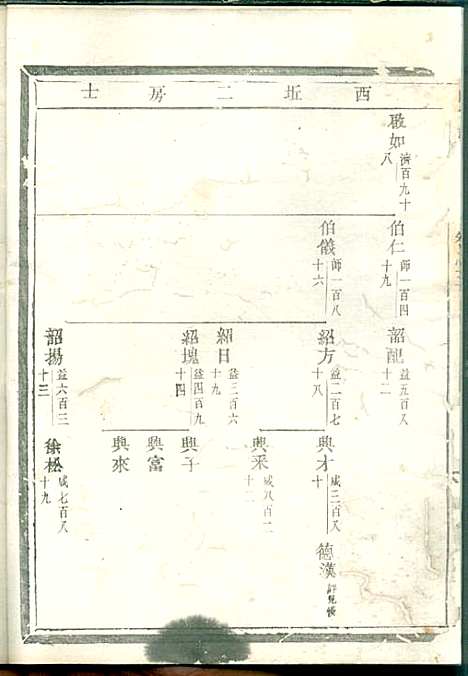 西坵二房士
啟如 濟百九十八
伯仁 師一百四十九
伯儀 師一百八十六
韶配 益五百八十二
紹方 益二百七十八
紹日 益三百六十九
紹塊 益四百九十四
韶揚 益六百三十三
興才 咸三百八十
興釆 咸八百二十二
興子
興富
興來
徐松 咸七百八十九
德漢 詳見後